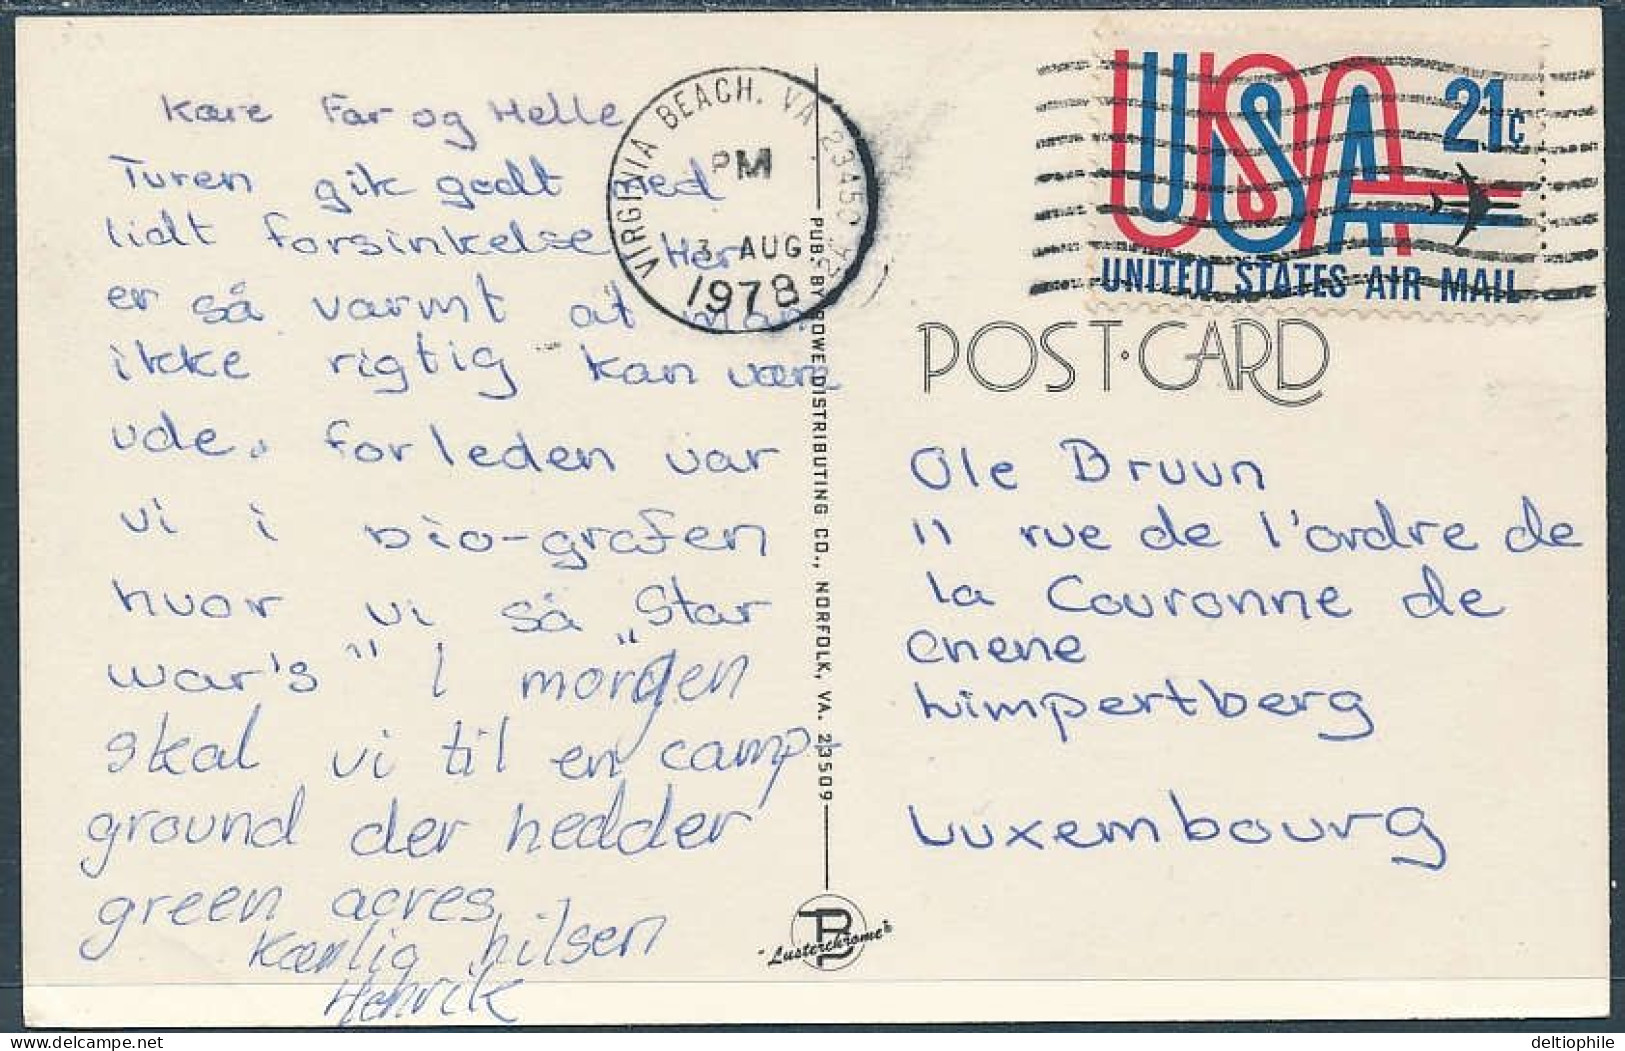 Kære Far og Helle
Turen gik godt med
lidt forsinkelse Her
er så varmt at man
ikke rigtig kan være
ude. forleden var
vi i bio-grafen
hvor vi så „Star
war's" I morgen
skal vi til en camp-
ground der hedder
green acres
Kærlig hilsen
Henrik
VIRGINIA BEACH, VA 23450 USA
PM
3 AUG
1978
PUB. BY ROWE DISTRIBUTING CO., NORFOLK, VA. 23509
"Lusterchrome"
USA 21c
UNITED STATES AIR MAIL
POST·CARD
Ole Bruun
11 rue de l'ordre de
la Couronne de
chene
Limpertberg
Luxembourg
deltiophile